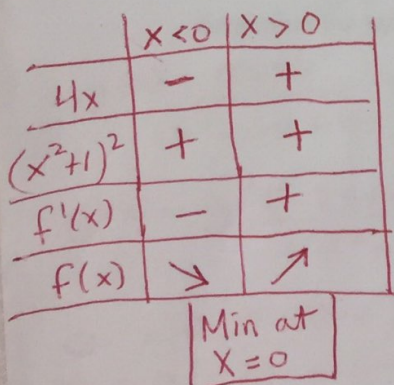 x<0 x>0
4x − +
(x²+1)² + +
f'(x) − +
f(x) ↘ ↗
Min at
x=0